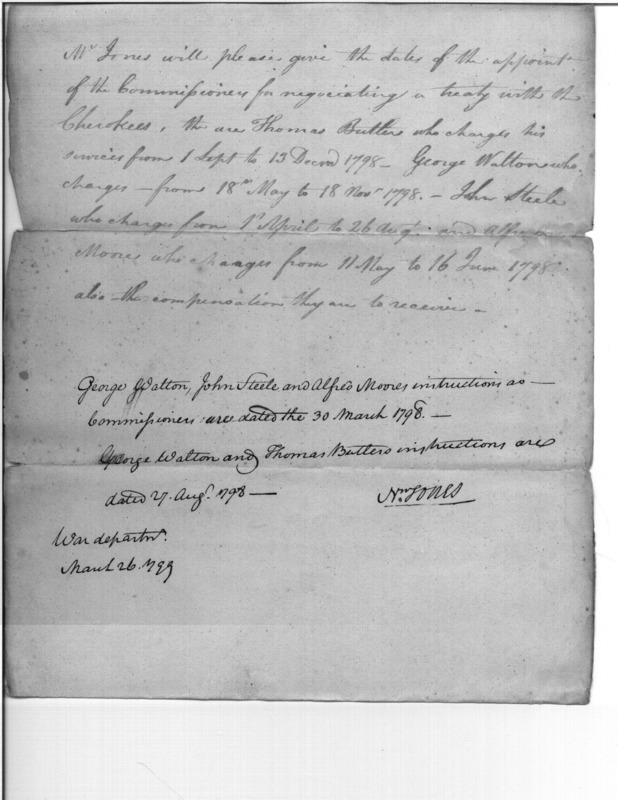 Mr Jones will please give the dates of the appointt
of the Commissioners for negociating a treaty with the
Cherokees, the are Thomas Butler who charges his
services from 1 Sept to 13 Decem 1798 — George Walton who
charges — from 18th May to 18 Novr 1798. — John Steele
who charges from 1st April to 26 Augt. and Alfred
Moore who charges from 11 May to 16 June 1798
also the compensation they are to receive —
George Walton, John Steele and Alfred Moores instructions as —
Commissioners are dated the 30 March 1798. —
George Walton and Thomas Butlers instructions are
dated 27. Augt. 1798 —
Nn. Jones
War departmt.
March 26. 1799